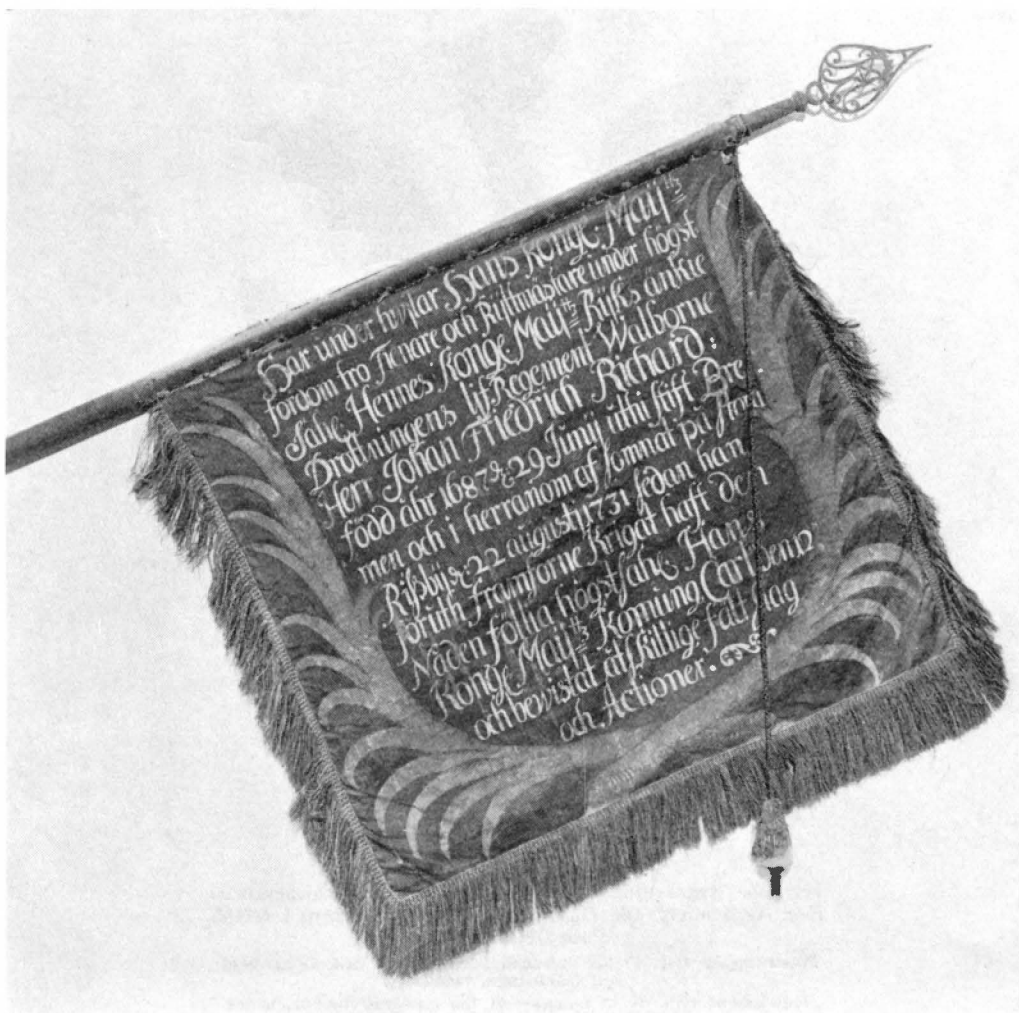 Här under hwilar Hans Konge: Maij:tz
fordom tro Tienare och Rijttmästare under högst
Sahl: Hennes Konge Maij:tz Rijks änkie
Drottningens lif Regement Wälborne
Herr Johan Friedrich Richard:
född ahr 1687 d: 29 Junij uthi stift Bre
men och i herranom afsomnat på Hera
Rißbÿ d: 22 augustij 1731 sedan han
föruth framforne Krigat haft den
Nåden föllia högstsahl: Hans
Konge Maij:tz Konung Carl den 12
och bewistat åtskillige fält slag
och Actioner.